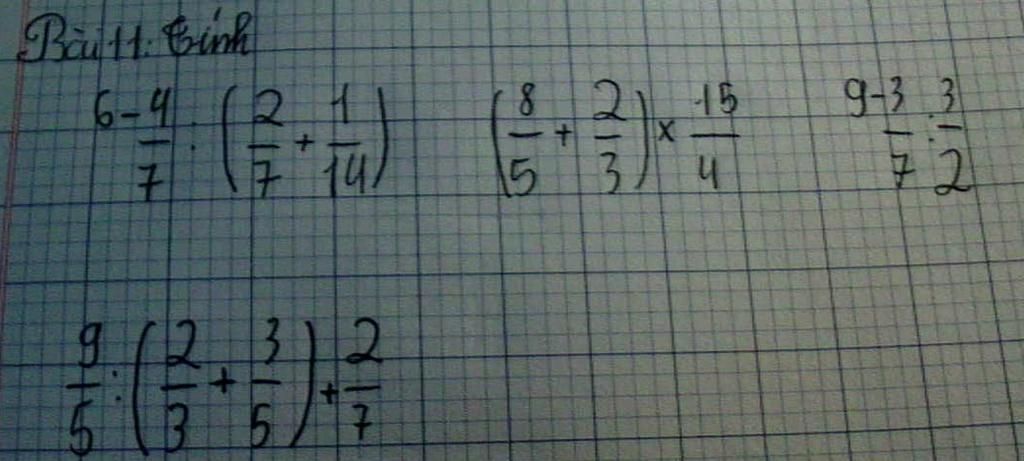 Bài 11. Tính
6 - 4/7 : (2/7 + 1/14) (8/5 + 2/3) × 15/4 9 - 3/7 : 3/2
9/5 : (2/3 + 3/5) + 2/7